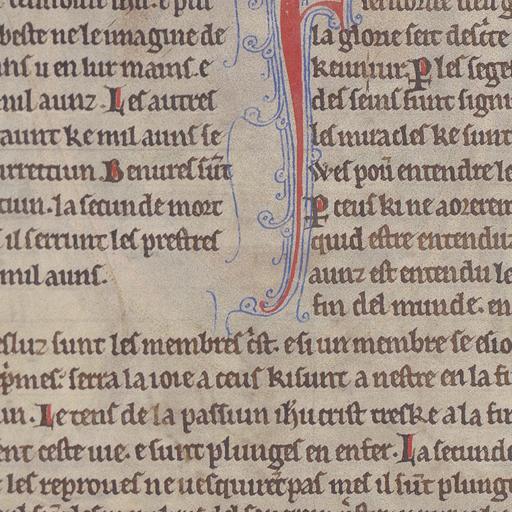 beste ne le unagine de
ns u en lur mains. e
mil aunz. Les autres
aunt ke mil auns se
urrectiun. Benures sūt
tiun. la secunde mort
il serrunt les prestres
mil auns.
la glorie seit descte
les sege
des seins sunt signi
les miracles ke sunt
wes poū entendre le
P ceus ki ne aorerent
quid estre entenduz
aunz est entendu le
fin del munde. en
esluz sunt les membres c̄st. e si un membre se esio
p̄mes: serra la ioie a ceus ki sunt a nestre en la fi
un. Le tens de la passiun ihū crist treske a la fin
ent ceste uie. e sunt plunges en enfer. La secunde
les reproues ne uesquirēt pas mes il sūt plung